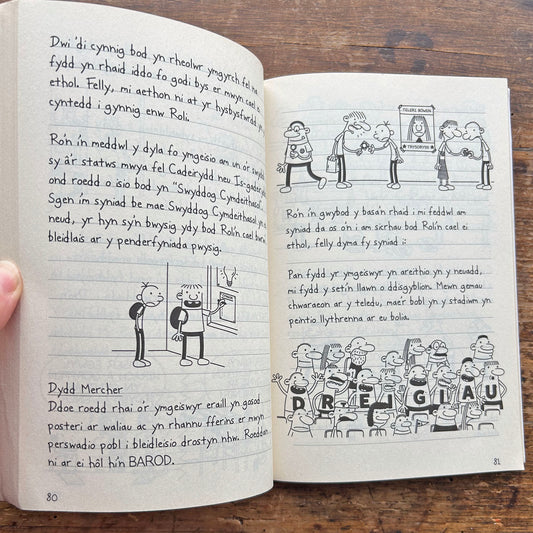 Dwi 'di cynnig bod yn rheolwr ymgyrch fel na
fydd yn rhaid iddo fo godi bys er mwyn cael ei
ethol. Felly, mi aethon ni at yr hysbysfwrdd yn y
cyntedd i gynnig enw Roli.
Ro'n i'n meddwl y dyla fo ymgeisio am un o'r swyddi
sy â'r statws mwya fel Cadeirydd neu Is-gadeirydd
ond roedd o isio bod yn "Swyddog Cymdeithasol".
Sgen i'm syniad be mae Swyddog Cymdeithasol yn ei
neud, yr hyn sy'n bwysig ydy bod Roli'n cael bwrw
bleidlais ar y penderfyniada pwysig.
Dydd Mercher
Ddoe roedd rhai o'r ymgeiswyr eraill yn gosod
posteri ar waliau ac yn rhannu fferins er mwyn
perswadio pobl i bleidleisio drostyn nhw. Roeddan
ni ar ei hôl hi'n BAROD.
80
BOWEN
TRYSORYDD
Ro'n i'n gwybod y basa'n rhaid i mi feddwl am
syniad da os o'n i am sicrhau bod Roli'n cael ei
ethol, felly dyma fy syniad i:
Pan fydd yr ymgeiswyr yn areithio yn y neuadd,
mi fydd y seti'n llawn o ddisgyblion. Mewn gemau
chwaraeon ar y teledu, mae'r bobl yn y stadiwm yn
peintio llythrenna ar eu bolia.
DREIGIAU
81